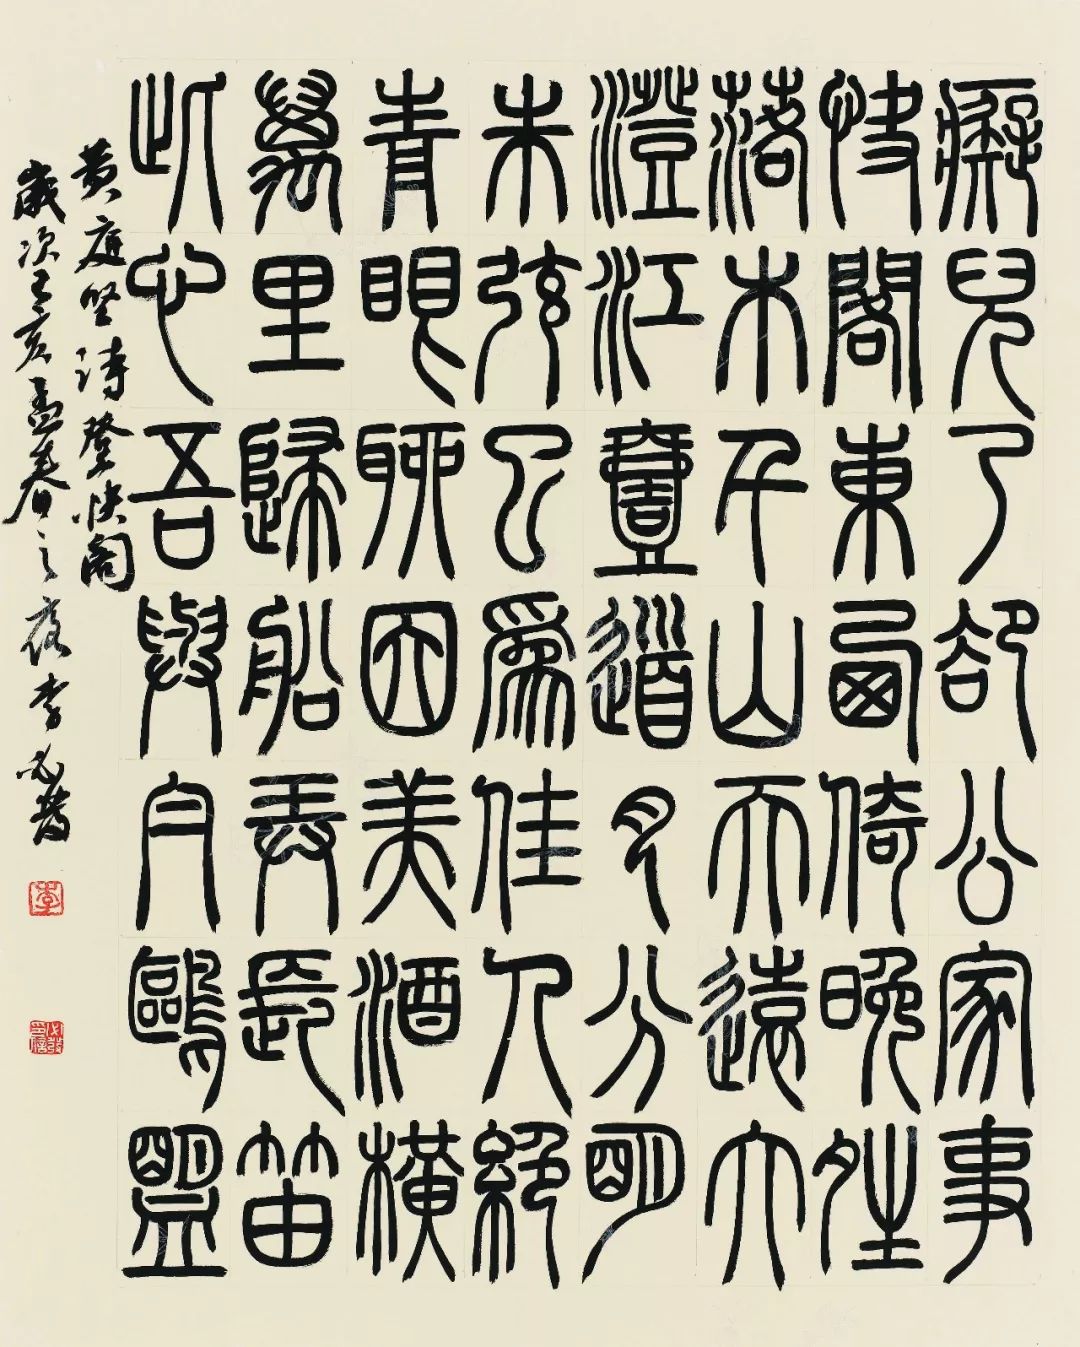 癡兒了卻公家事
快閣東西倚晚夝
落木千山天遠大
澄江壹道月分明
朱弦已爲佳人絕
青眼聊因美酒橫
萬里歸船弄長笛
此心吾與白鷗盟
黄庭坚诗登快阁
歲次己亥孟春之夜李
李